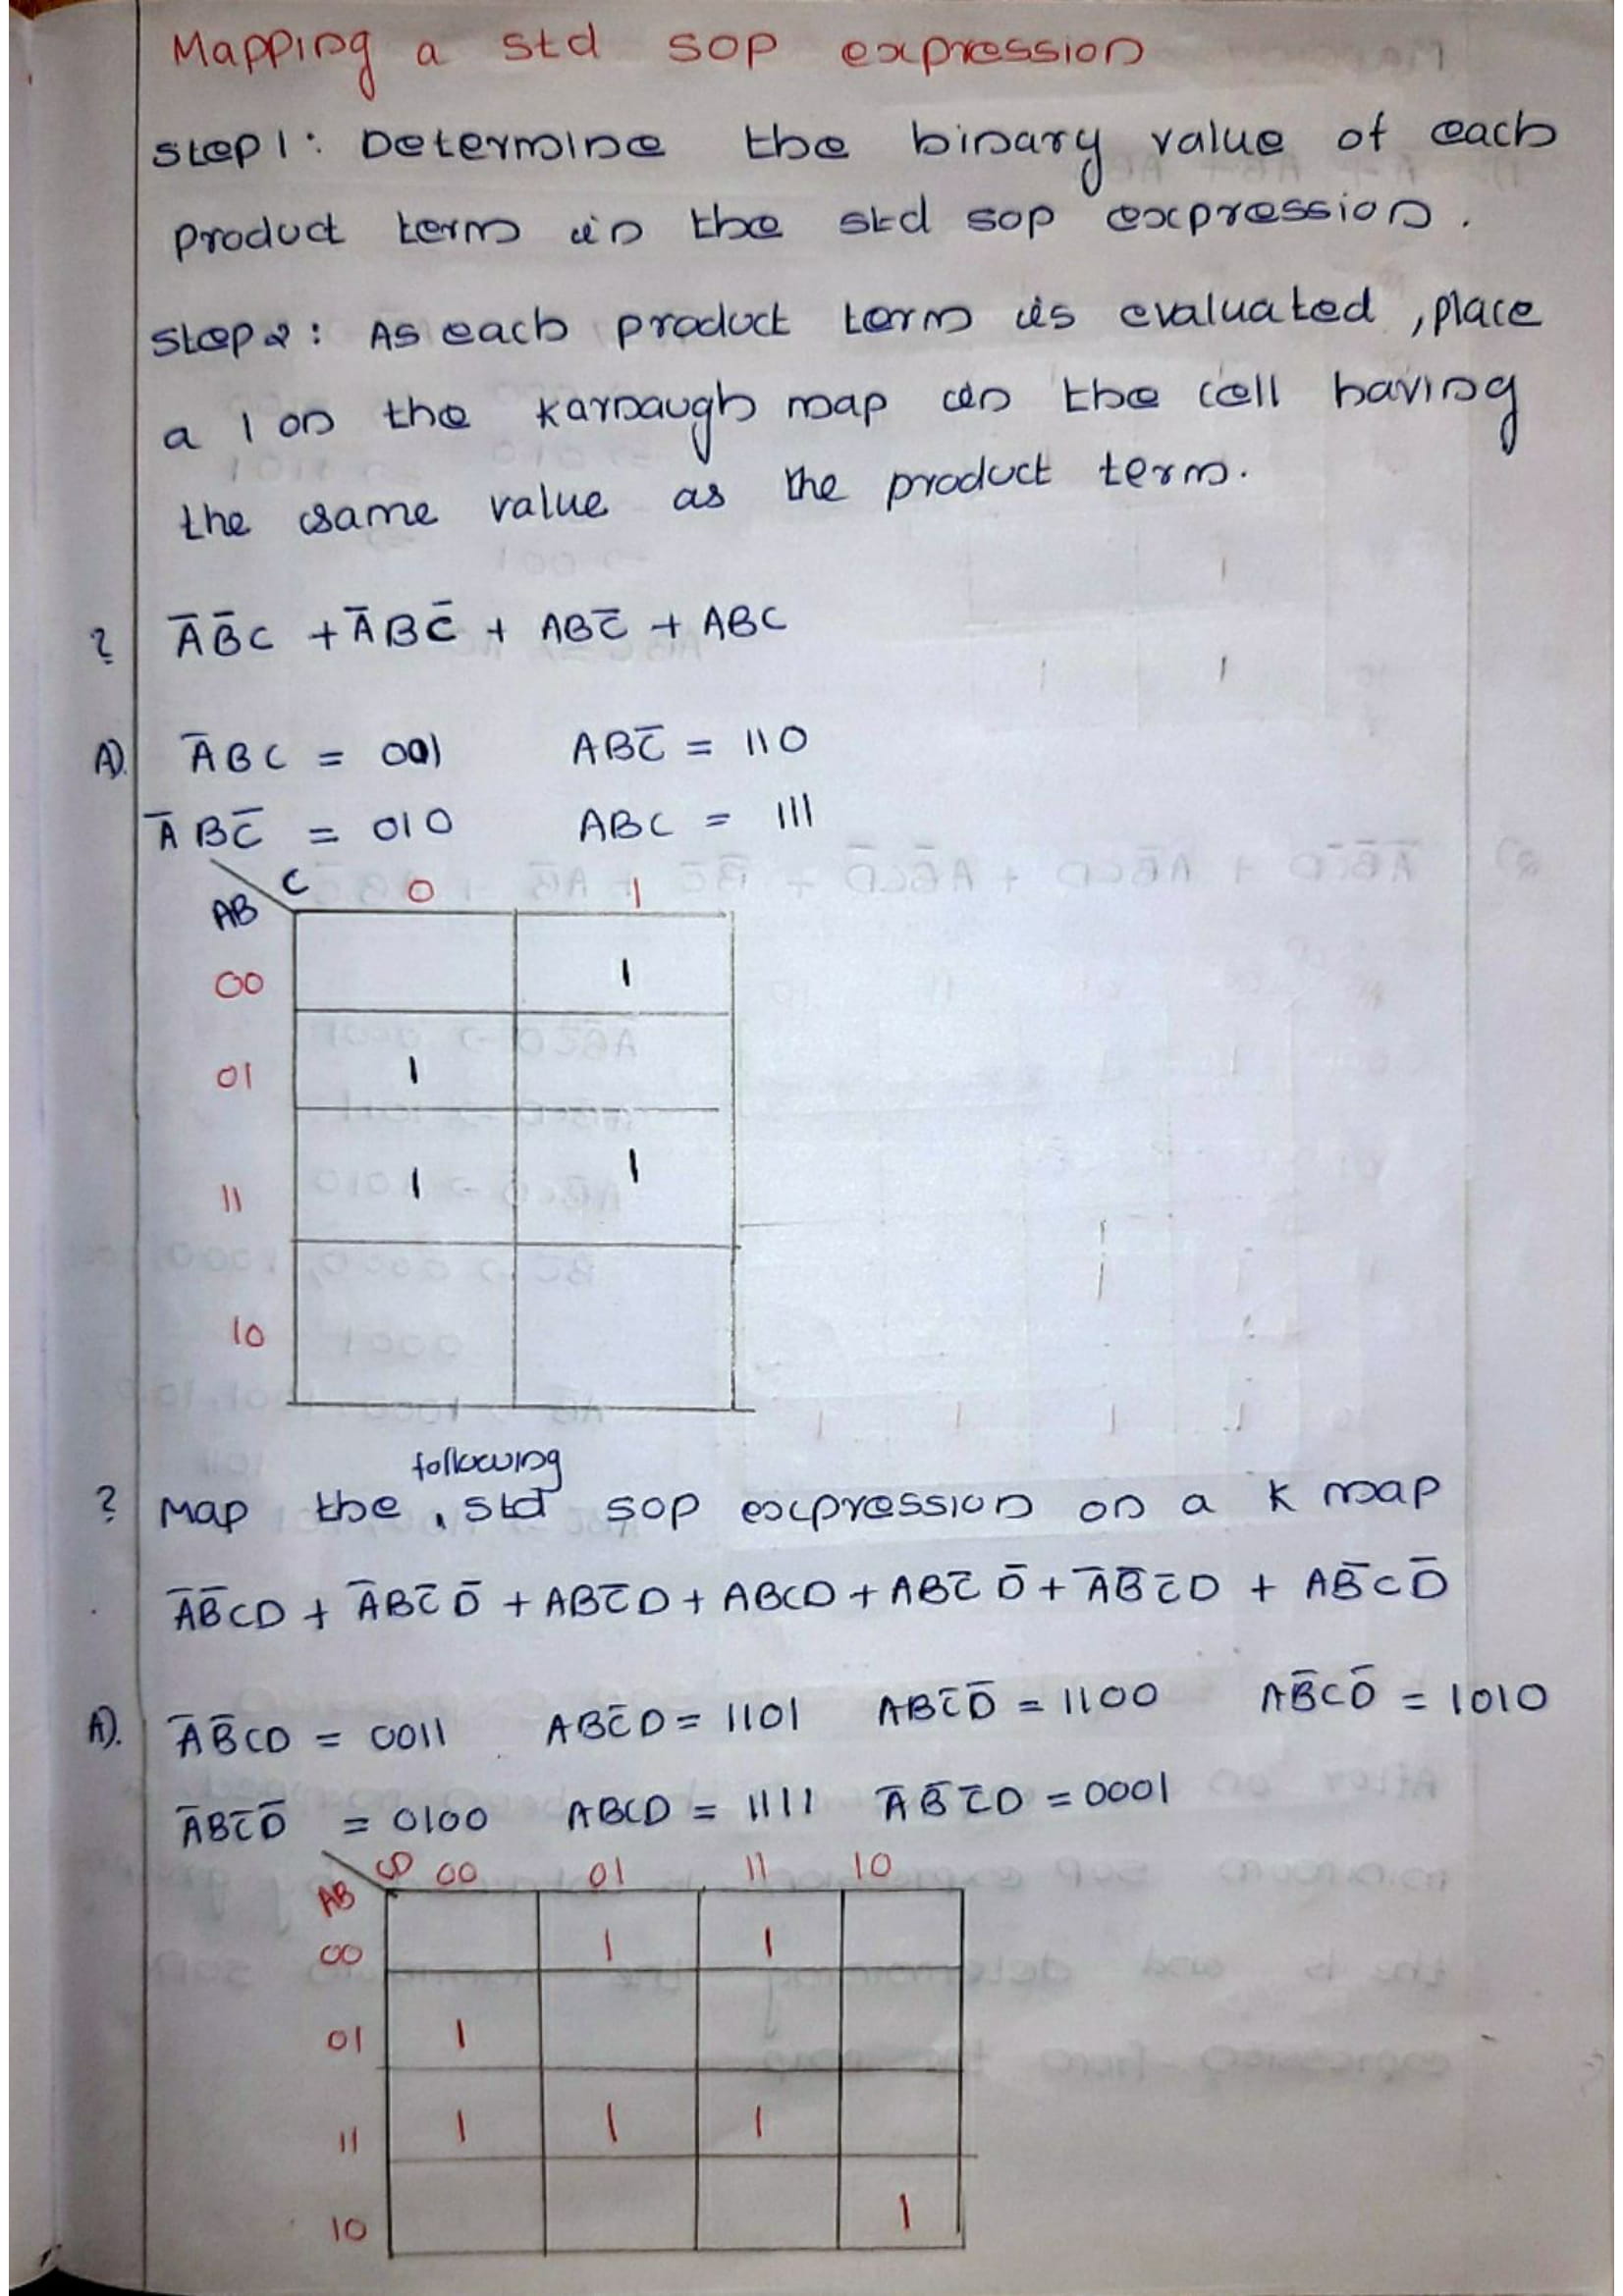 Mapping a std SOP expression
Step 1: Determine the binary value of each
product term in the std SOP expression.
Step 2: As each product term is evaluated, place
a 1 on the karnaugh map in the cell having
the same value as the product term.
? A̅B̅C + A̅BC̅ + ABC̅ + ABC
A). A̅BC = 001 ABC̅ = 110
A̅BC̅ = 010 ABC = 111
AB C 0 1
00 1
01 1
11 1 1
10
following
? Map the std SOP expression on a K map
A̅B̅CD + A̅BC̅D̅ + ABC̅D + ABCD + ABC̅D̅ + A̅B̅C̅D + AB̅CD̅
A). A̅B̅CD = 0011 ABC̅D = 1101 ABC̅D̅ = 1100 AB̅CD̅ = 1010
A̅BC̅D̅ = 0100 ABCD = 1111 A̅B̅C̅D = 0001
AB CD 00 01 11 10
00 1 1
01 1
11 1 1 1
10 1